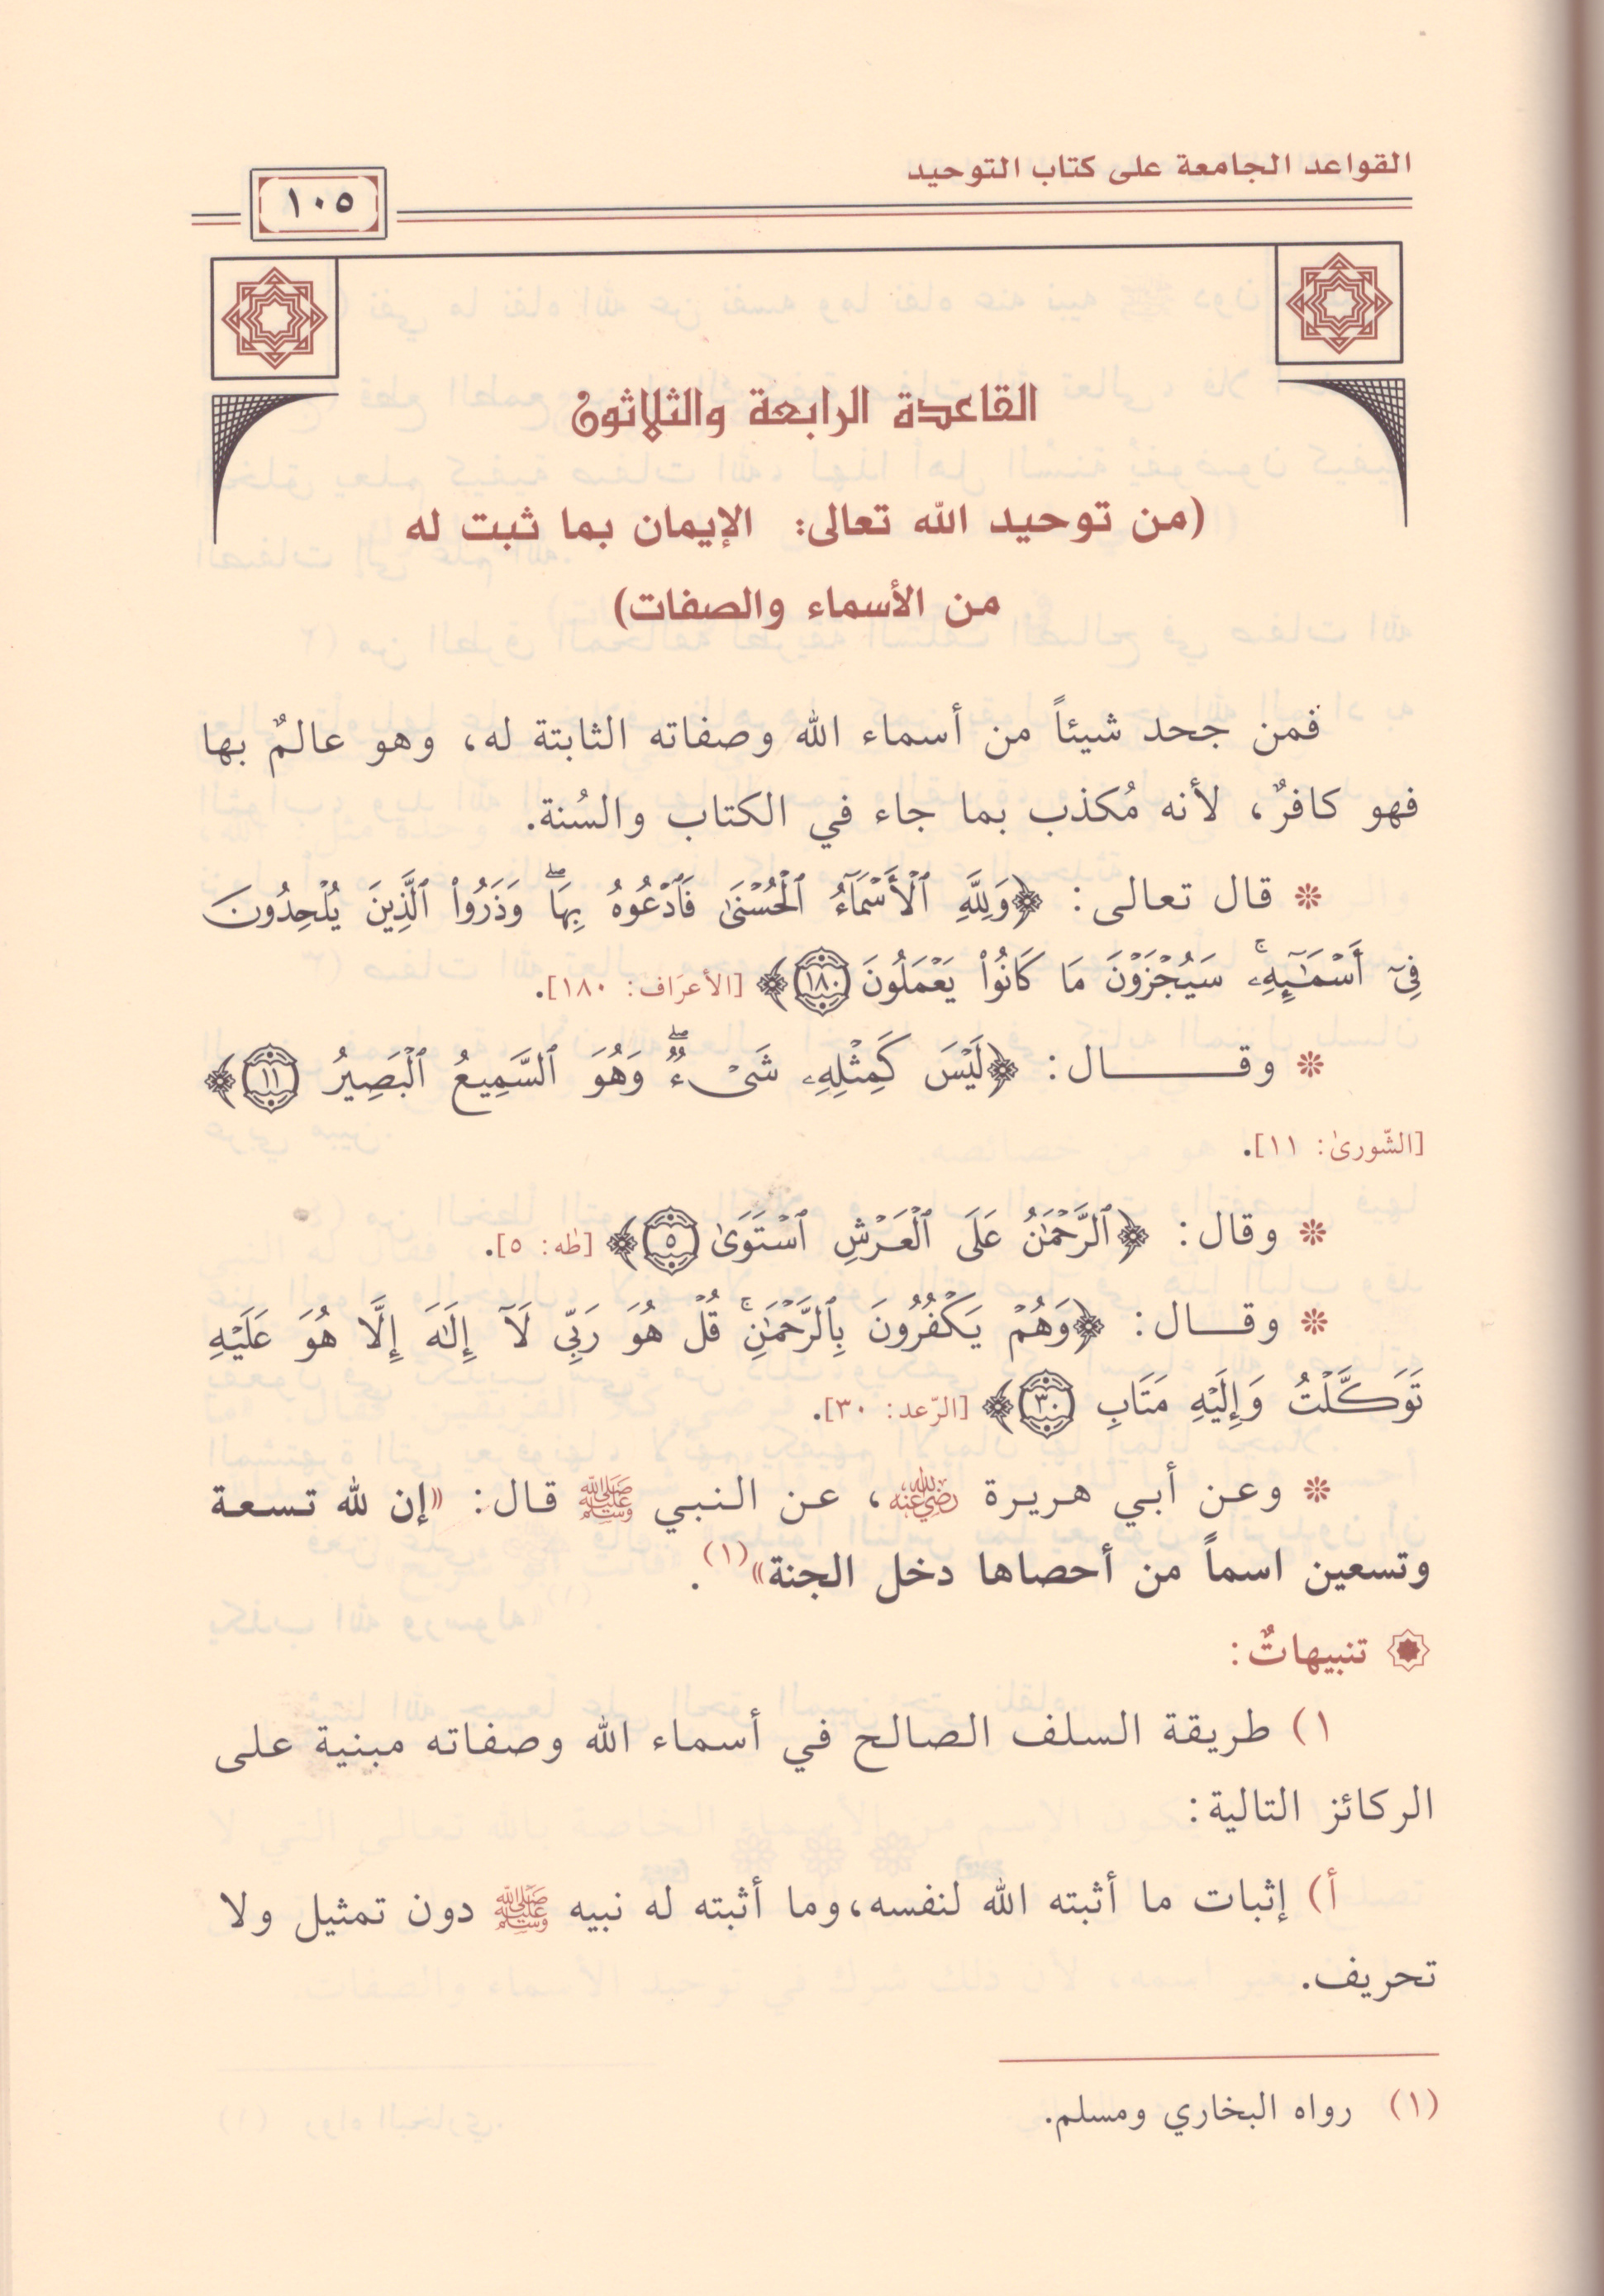 القواعد الجامعة على كتاب التوحيد
١٠٥
القاعدة الرابعة والثلاثون
(من توحيد الله تعالى: الإيمان بما ثبت له
من الأسماء والصفات)
فمن جحد شيئاً من أسماء الله وصفاته الثابتة له، وهو عالمٌ بها
فهو كافرٌ، لأنه مُكذب بما جاء في الكتاب والسُنة.
❊ قال تعالى: ﴿وَلِلَّهِ ٱلْأَسْمَآءُ ٱلْحُسْنَىٰ فَٱدْعُوهُ بِهَا ۖ وَذَرُوا۟ ٱلَّذِينَ يُلْحِدُونَ
فِىٓ أَسْمَـٰٓئِهِۦ ۚ سَيُجْزَوْنَ مَا كَانُوا۟ يَعْمَلُونَ ١٨٠﴾ [الأعرَاف: ١٨٠].
❊ وقـــــال: ﴿لَيْسَ كَمِثْلِهِۦ شَىْءٌ ۖ وَهُوَ ٱلسَّمِيعُ ٱلْبَصِيرُ ١١﴾
[الشّورىٰ: ١١].
❊ وقال: ﴿ٱلرَّحْمَـٰنُ عَلَى ٱلْعَرْشِ ٱسْتَوَىٰ ٥﴾ [طه: ٥].
❊ وقـــال: ﴿وَهُمْ يَكْفُرُونَ بِٱلرَّحْمَـٰنِ ۚ قُلْ هُوَ رَبِّى لَآ إِلَـٰهَ إِلَّا هُوَ عَلَيْهِ
تَوَكَّلْتُ وَإِلَيْهِ مَتَابِ ٣٠﴾ [الرّعد: ٣٠].
❊ وعن أبي هريرة رضي الله عنه، عن النبي ﷺ قال: «إن لله تسعة
وتسعين اسماً من أحصاها دخل الجنة»(١).
تنبيهاتٌ:
١) طريقة السلف الصالح في أسماء الله وصفاته مبنية على
الركائز التالية:
أ) إثبات ما أثبته الله لنفسه، وما أثبته له نبيه ﷺ دون تمثيل ولا
تحريف.
(١) رواه البخاري ومسلم.